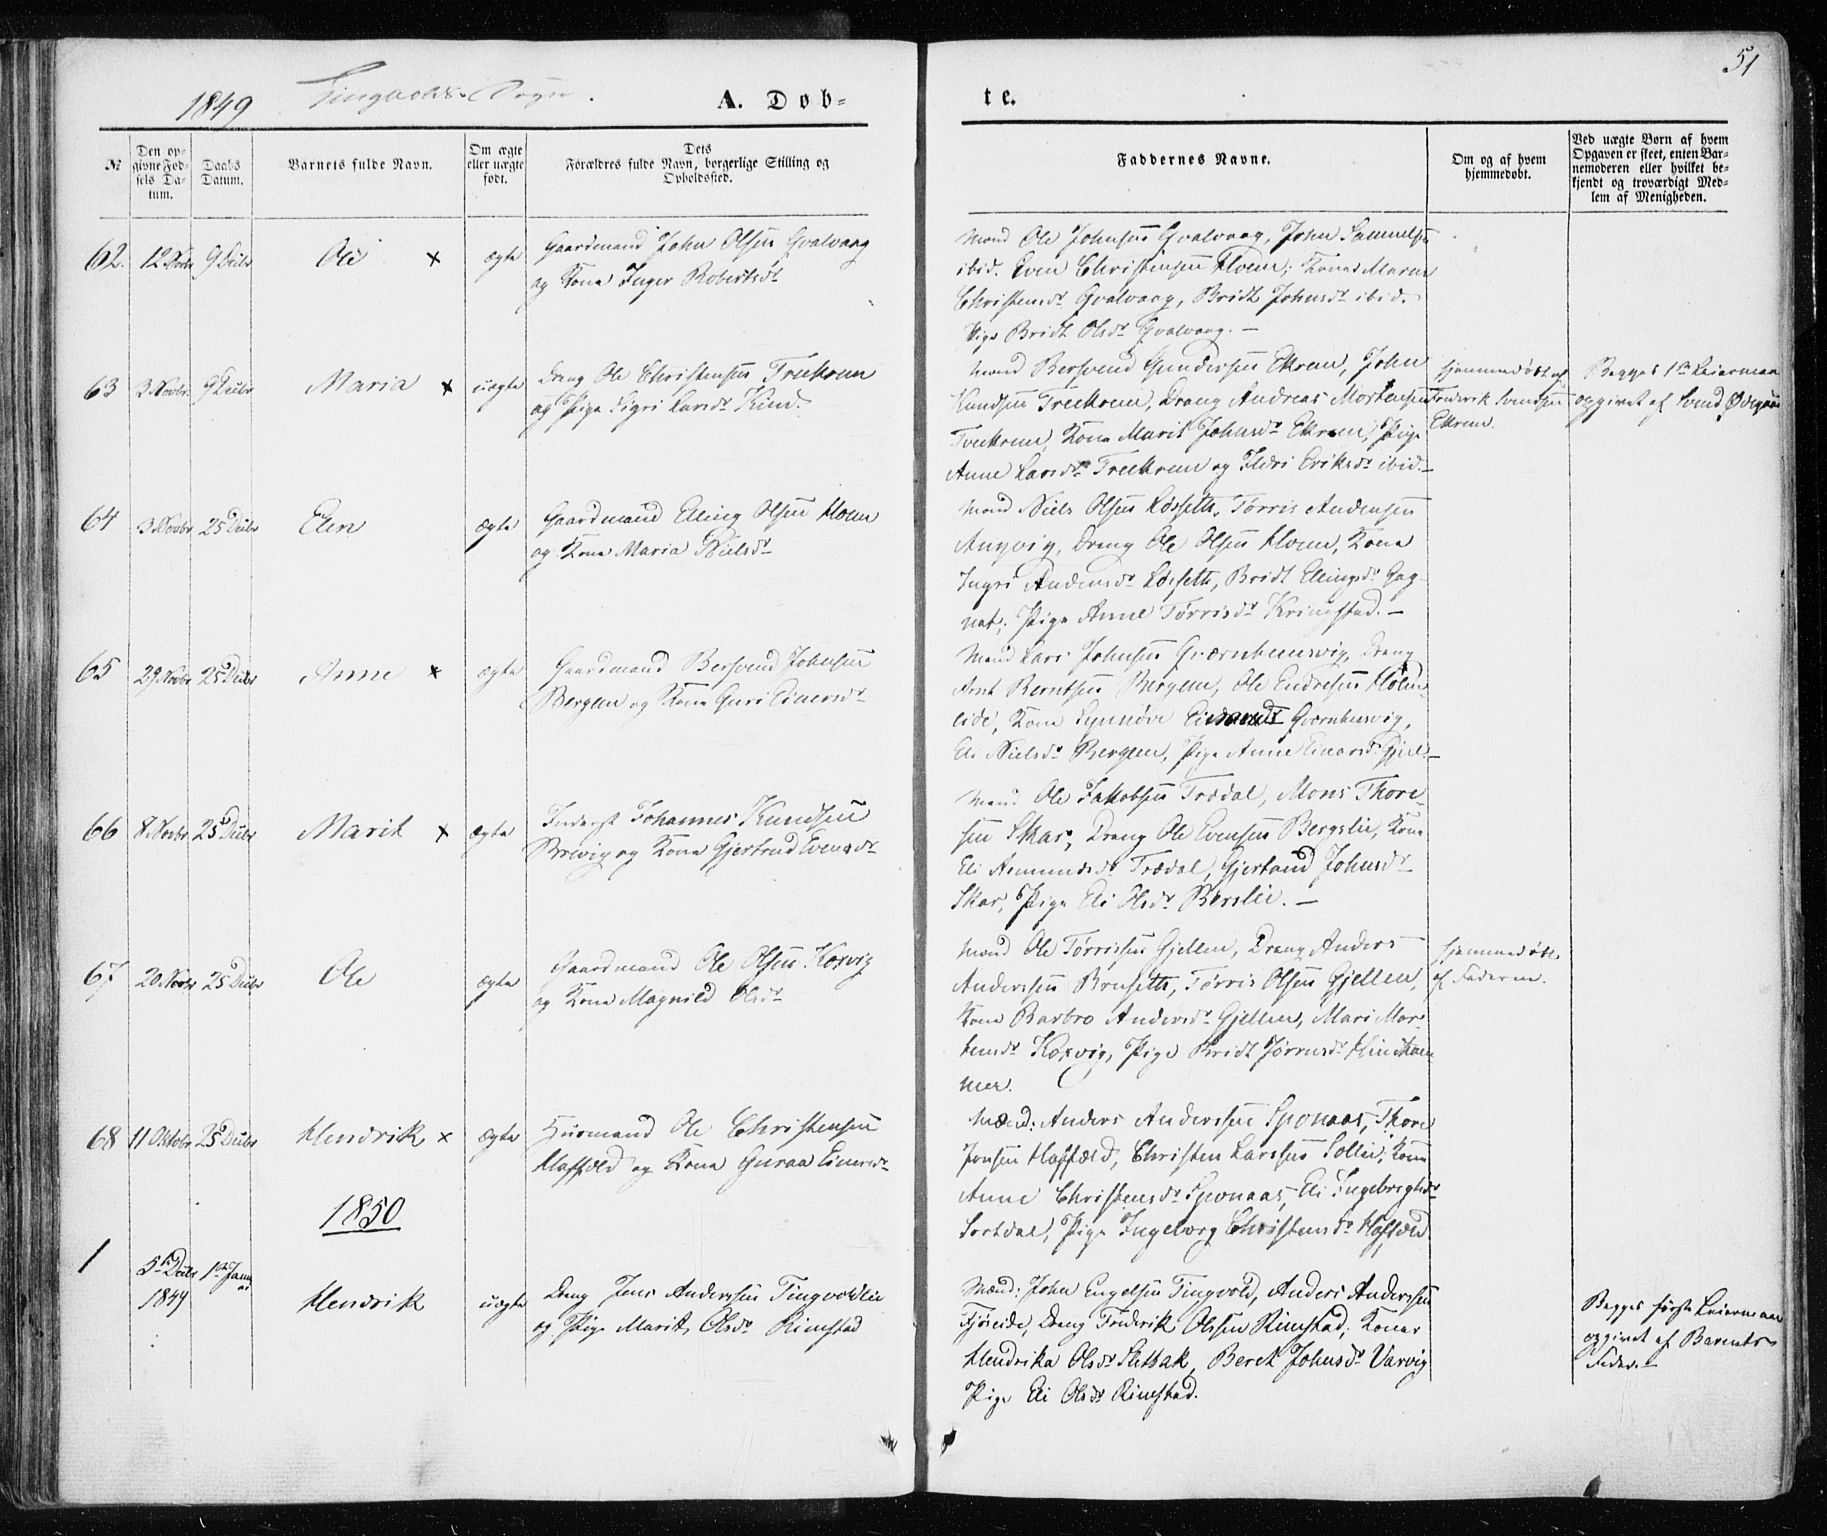 51
1849 Tingvolds Sogn.
A. Døb-
te.
№
Den op-
givne Fød-
sels Da-
tum.
Daabs
Datum.
Barnets fulde Navn.
Om ægte
eller uægte
født.
Dets
Forældres fulde Navn, borgerlige Stilling og
Opholdssted.
Faddernes Navne.
Om og af hvem
hjemmedøbt.
Ved uægte Børn af hvem
Opgaven er skeet, enten Bar-
nemoderen eller hvilket be-
kjendt og troværdigt Med-
lem af Menigheden.
62. 12 Novbr 9 Decbr Ole × ægte
Gaardmand John Olsen Gvalvaag
og Kona Inger Robertsdr
Mænd Ole Johnsen Gvalvaag, John Samuelsen
ibid. Even Christensen Hoem; Koner Maren
Christensdr Gvalvaag, Bridt Johnsdr ibid.
Pige Bridt Olsdr Gvalvaag. —
63 3 Novbr. 9 Decbr Maria × uægte
Dreng Ole Christensen Treekrem
og Pige Sigri Larsdr
Mænd Bersvend Gundersen Ekrem, John
Knudsen Treekrem, Dreng Andreas Mortensen
Treekrem, Kone Marit Johnsdr Ekrem, Pige
Anne Larsdr Treekrem og Ildri Eriksdr ibid.
hjemmedøbt af
Frederik Svendsen
Ekrem.
Begges 1ste Leiermaal
opgivet af Svend
64 3 Novbr 25 Decbr Elen ægte
Gaardmand Elling Olsen Hoem
og Kona Maria Nielsdr
Mænd Niels Olsen Løsseth, Tørris Andersen
Angvig, Dreng Ole Olsen Hoem, Kona
Ingri Andersdr Løsseth, Bridt Ellingsdr Gag-
nat; Pige Anne Tørrisdr Kringstad. —
65 29 Novbr 25 Decbr Anne × ægte
Gaardmand Bersvend Johnsen
Bergem og Kona Guri Einersdr
Mænd Lars Johnsen Gværnhuusvig, Dreng
Arnt Berntsen Bergem, Ole Endresen Holm-
eide, Kona Synnøve Gværnhusvig,
Eli Nielsdr Bergem, Pige Anne Einarsdr
66 8 Novbr 25 Decbr Marit × ægte
Inderst Johannes Knudsen
Brevig og Kona Gjertrud Evensdr
Mænd Ole Jakobsen Trædal, Mons Thore-
sen Skar, Dreng Ole Evensen Bergslie, Kona
Eli Asmundsdr Trædal, Gjertrud Johnsdr
Skar, Pige Eli Olsdr Berslie. —
67 20 Novbr 25 Decbr Ole ægte
Gaardmand Ole Olsen Korsvig
og Kona Magnild Olsdr
Mænd Ole Tørrissen Gjellen, Dreng Anders
Anderssen Brusetth, Tørris Olsen Gjellen,
Kona Barbro Andersdr Gjellen, Mari Mor-
tensdr Korsvig, Pige Bridt
mer.
hjemmedøbt
af Faderen.
68 11 Oktobr 25 Decbr Hendrik × ægte
Huusmand Ole Christensen
Hafsæld og Kona Guraa Einersdr
Mænd: Anders Anderssen Sponaas, Thore
Jonsen Hafsæld, Christen Larssen Sollie, Kona
Anne Christensdr Sponaas, Eli Ingebregtsdr
Sortdal, Pige Ingeborg Christensdr Hafsæld
1850
1 5te Decbr 1849 1ste Janu-
ar Hendrik uægte
Dreng Jens Anderssen Tingvoldlie
og Pige Marit Olsdr Rimstad
Mænd: John Engelsen Tingvold, Anders Anderssen
Fjøseide, Dreng Frederik Olssen Rimstad, Koner
Hendrika Olsdr Sletbak, Beret Johnsdr Varvig
Pige Eli Olsdr Rimstad.
Begges første Leiermaal
opgivet af Barnets
Fader. —